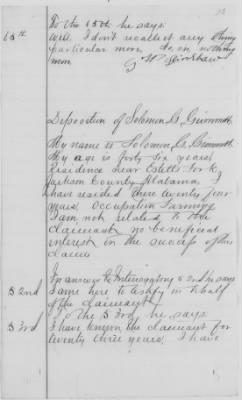 65th To the 65th he says:
Well I don't recollect any thing
particular more, so, in nothing
more
Deposition of Solomon G. Grimmett
My name is Solomon G. Grimmett
My age is forty six years
Residence near Estills Fork
Jackson County Alabama
have resided there twenty four
years, Occupation Farming
I am not related to the
claimant no beneficial
interest in the success of this
claim
In answer to Interrogatory 2nd he says
2nd I am here to testify in behalf
of the claimant
To the 3rd, he says
3rd I have known the claimant for
twenty three years, I have